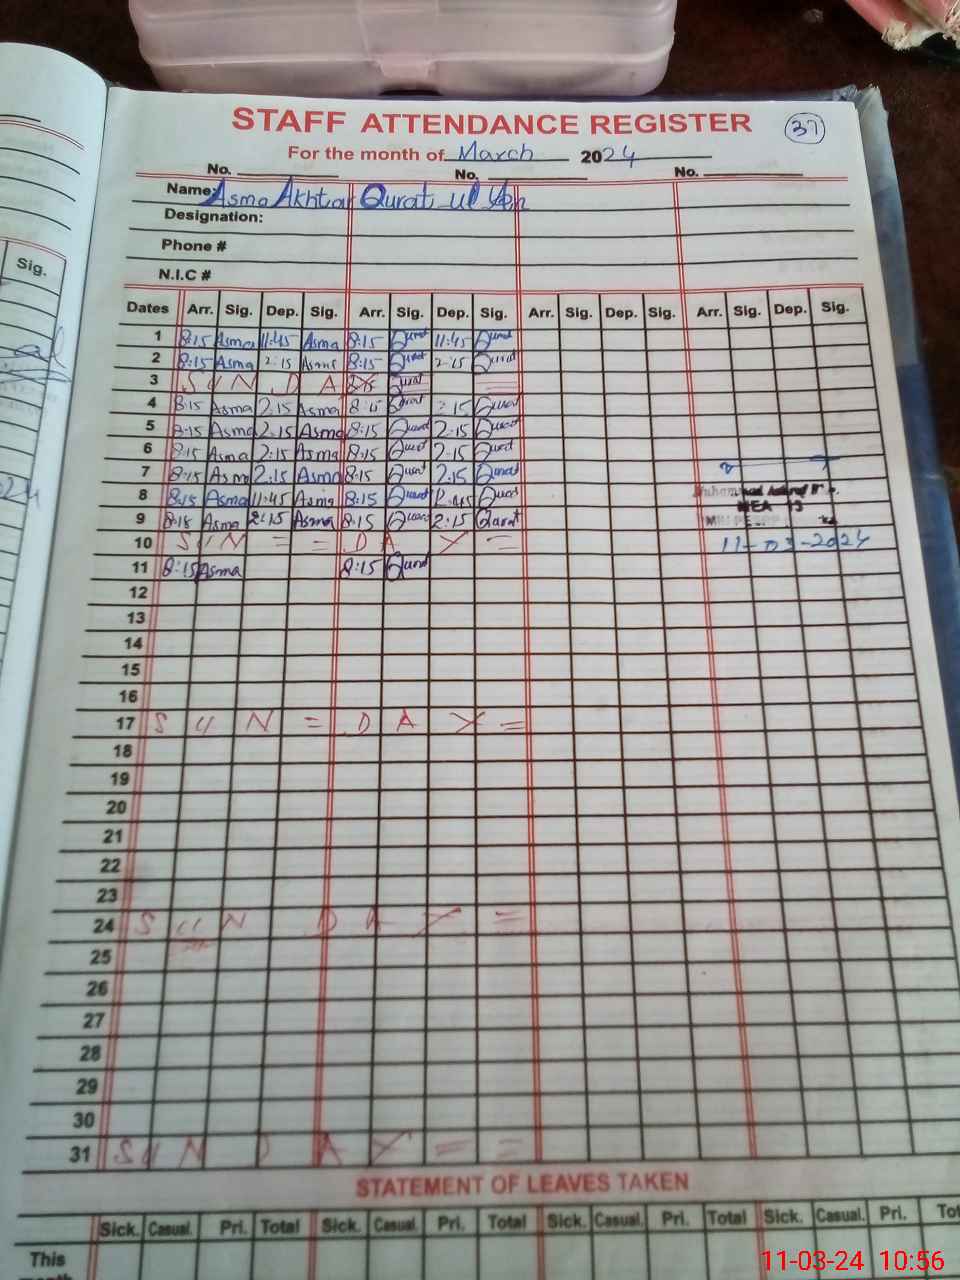 STAFF ATTENDANCE REGISTER 37
For the month of March 2024
No. No. No.
Name: Asma Akhtar Qurat ul Aen
Designation:
Phone #
N.I.C #
Sig.
Dates Arr. Sig. Dep. Sig. Arr. Sig. Dep. Sig. Arr. Sig. Dep. Sig. Arr. Sig. Dep. Sig.
1 8:15 Asma 11:45 Asma 8:15 Qurat 11:45 Qurat
2 8:15 Asma 2:15 Asma 8:15 Qurat 2:15 Qurat
3 S U N D A Qurat =
4 8:15 Asma 2:15 Asma 8:15 Qurat 2:15 Qurat
5 8:15 Asma 2:15 Asma 8:15 Qurat 2:15 Qurat
6 8:15 Asma 2:15 Asma 8:15 Qurat 2:15 Qurat
7 8:15 Asma 2:15 Asma 8:15 Qurat 2:15 Qurat
8 8:15 Asma 11:45 Asma 8:15 Qurat Qurat
9 Asma 2:15 Asma 8:15 Qurat 2:15 Qurat
10 S U N = = D A Y =
11-03-2024
11 8:15 Asma 8:15 Qurat
12
13
14
15
16
17 S U N = D A Y =
18
19
20
21
22
23
24 S U N D A Y =
25
26
27
28
29
30
31 S U N D A Y = =
STATEMENT OF LEAVES TAKEN
Sick. Casual. Pri. Total Sick. Casual. Pri. Total Sick. Casual. Pri. Total Sick. Casual. Pri. Tot
This
month
11-03-24 10:56